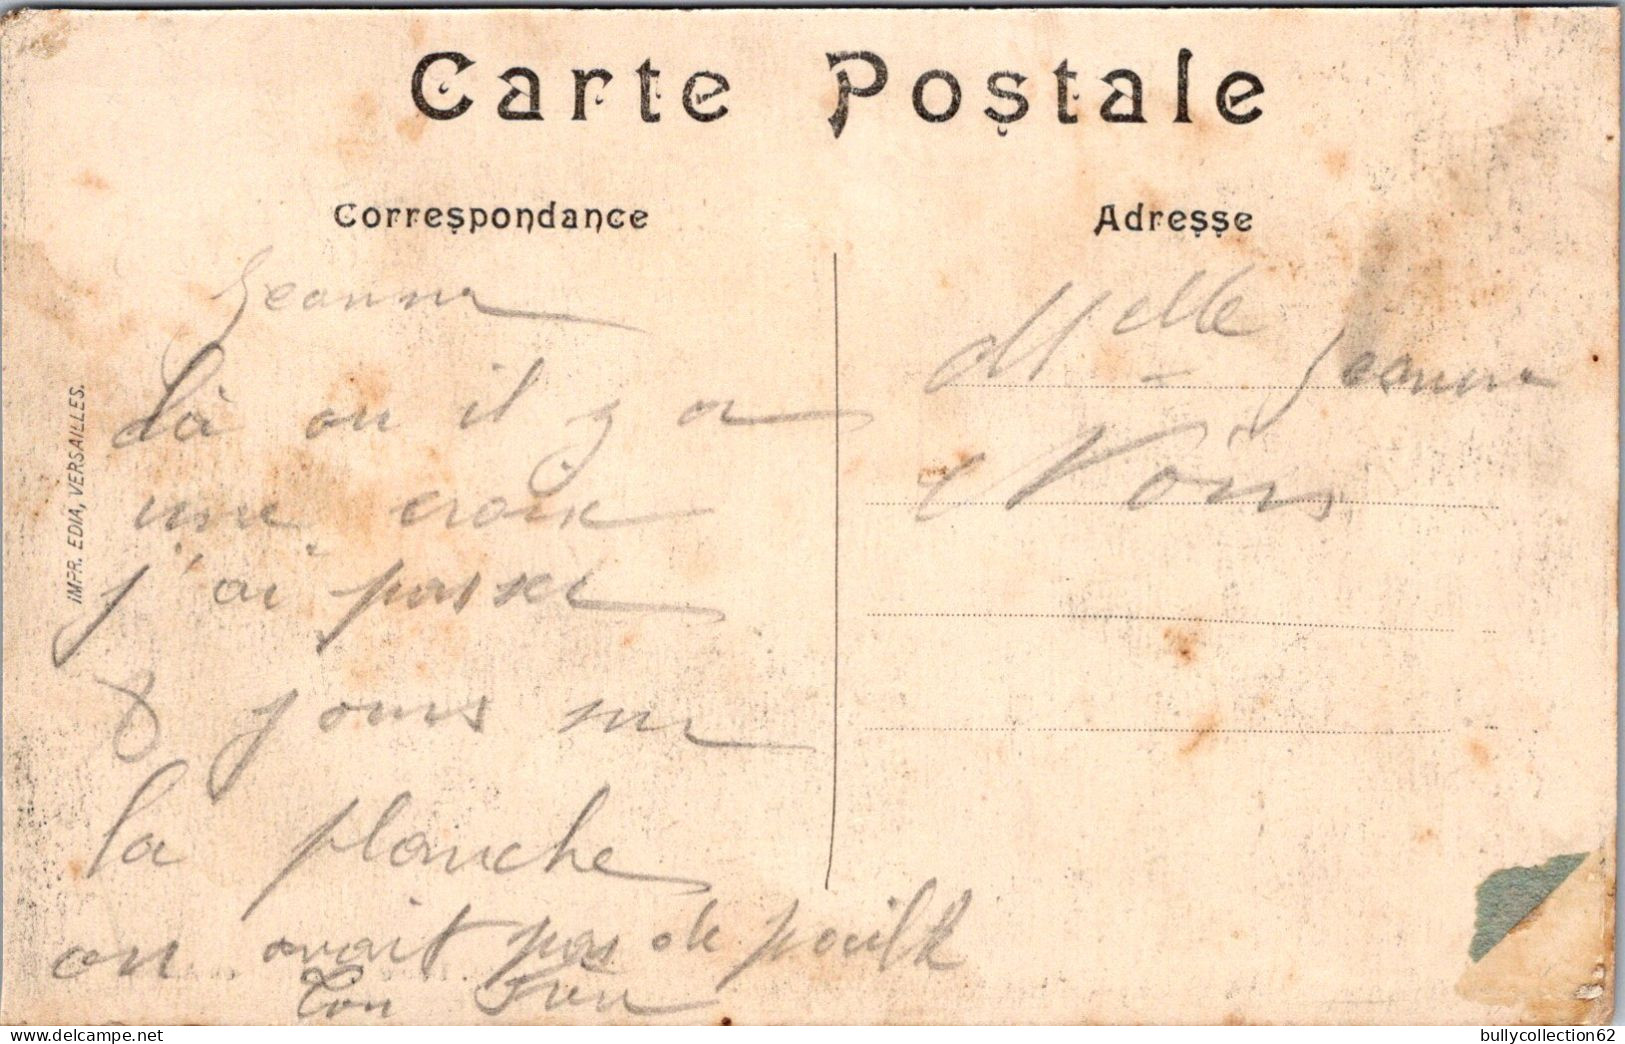 Carte Postale
Correspondance
Adresse
Jeanne
Là ou il y a
une croix
j'ai passer
8 jours sur
la planche
on avait pas de
Ton Frère
Melle Jeanne
IMPR. EDIA, VERSAILLES.
bullycollection62